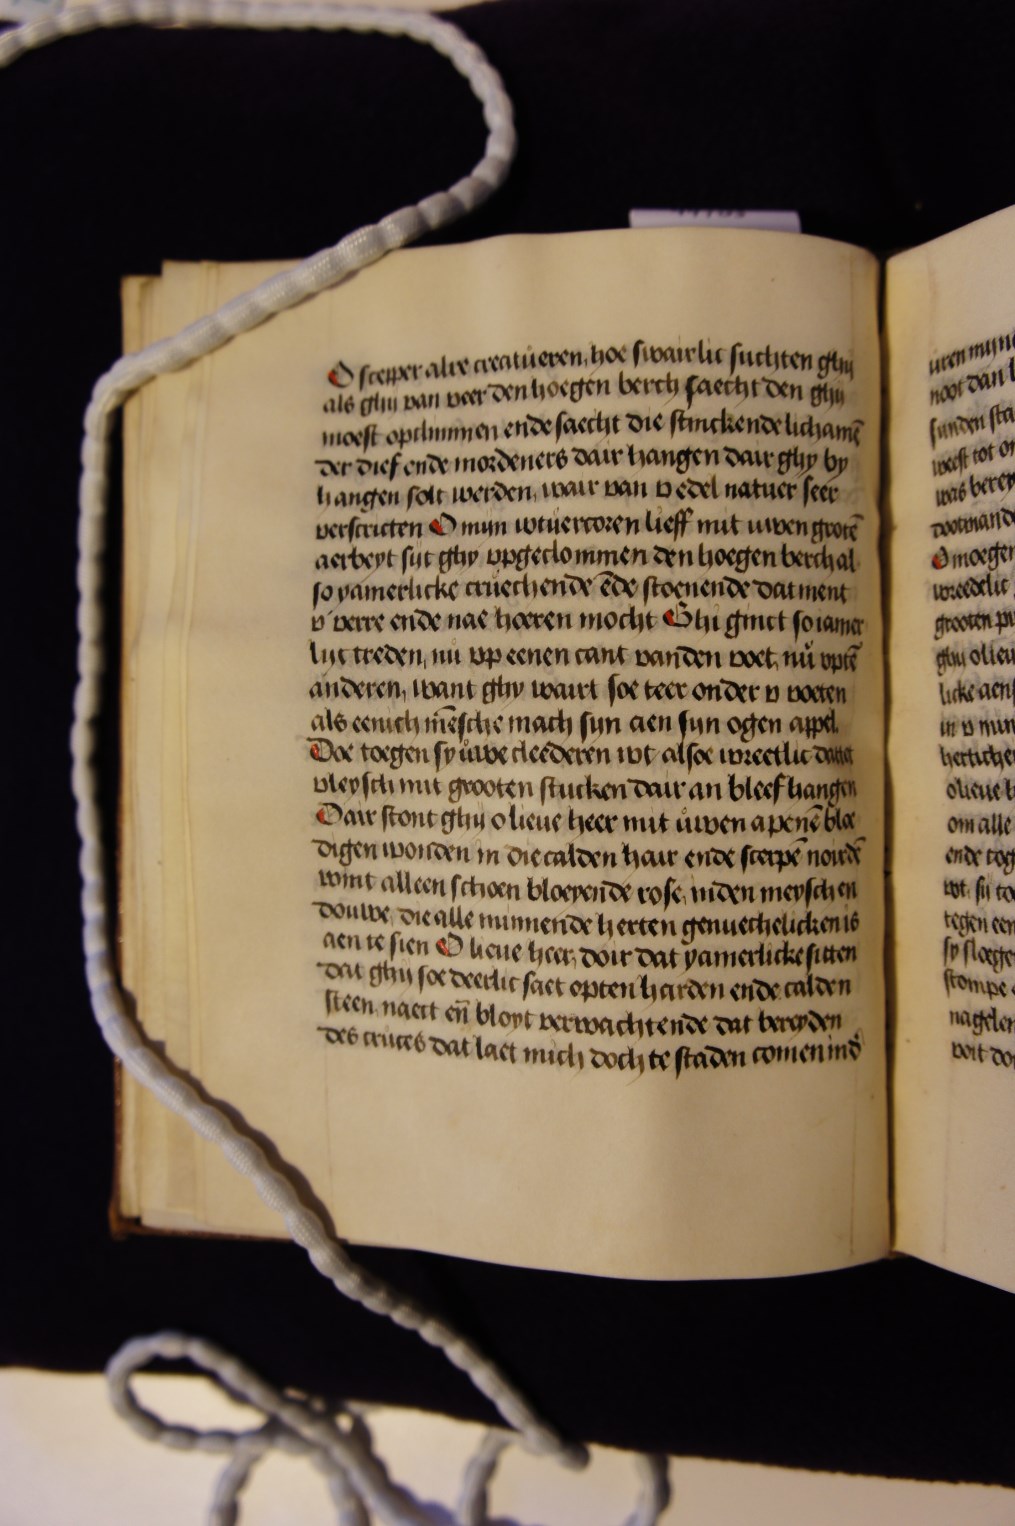 O scepper alre creatueren, hoe swairlic suchten ghij
als ghij van veer den hoegen berch saecht den ghij
moest opclimmen ende saecht die stinckende lichamē
der dief ende mordeners dair hangen dair ghy by
hangen solt werden, wair van v edel natuer seer
verscricten O mijn wtuercoren lieff mit uwen grotē
aerbeyt sijt ghy vpgeclommen den hoegen berch al
so yamerlicke cruechende ēde stoenende dat ment
v verre ende nae hoeren mocht Ghij ginct so iamer
lijc treden, nu vp eenen cant vanden voet, nu vptē
anderen, want ghy wairt soe teer onder v voeten
als eenich mēsche mach sijn aen sijn ogen appel.
Doe toegen sy uwe cleederen wt alsoe wreetlic
vleysch mit grooten stucken dair an bleef hangen
Dair stont ghij o lieue heer mit uwen apenē bloe
digen wonden in die calden hair ende scerpē nordē
wint alleen schoen bloeyende rose, inden meyschen
douwe, die alle minnende herten genuechelicken is
aen te sien O lieue heer, doir dat yamerlicke sitten
dat ghij soe deerlic saet opten harden ende calden
steen naect eñ bloyt verwachtende dat bereyden
des cruces dat laet mich doch te staden comen
noot dan
sunden
weest tot
was
O moegen
wreedelic
grooten
ghij o lieu
licke aen
in v
o lieue
om alle
ende tog
wt. sij
tegen een
sy sloege
stompe
nagelen